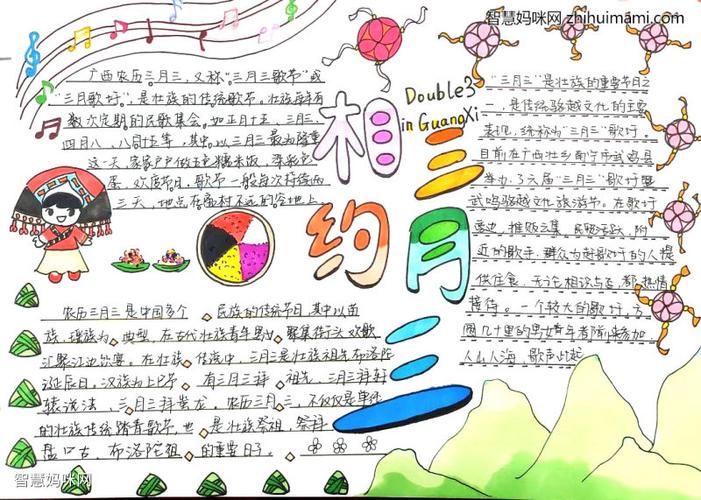 智慧妈咪网 zhihuimami.com
广西农历三月三,又称"三月三歌节"或
"三月歌圩",是壮族的传统歌节。壮族每年有
数次定期的民歌集会。如正月十五、三月三、
四月八、八月十五等,其中以三月三最为隆重
这一天家家户户做五色糯米饭,染彩色
蛋,欢度节日,歌节一般每次持续两
三天,地点在离村不远的空地上
相约
三月三
Double3
in GuangXi
"三月三"是壮族的重要节日之
一,是传统骆越文化的主要
表现,统称为"三月三"歌圩,
目前在广西壮乡南宁市武鸣县
举办了六届"三月三"歌圩暨
武鸣骆越文化旅游节。在歌圩
旁边,摊贩云集,民贸活跃,附
近的群众为赶歌圩的人提
供住食,无论相识与否,都热情
接待。一个较大的歌圩,方
圆几十里的男女青年都前来参加,
人山人海,歌声此起
农历三月三是中国多个民族的传统节日,其中以苗
族、瑶族为典型,在古代壮族青年男女聚集街头欢歌
汇聚江边饮宴。在壮族传说中,三月三是壮族祖先布洛陀
诞辰日,汉族为上巳节有三月三拜祖先、三月三拜轩
辕说法、三月三拜 龙,农历三月三,不仅仅是单纯
的壮族传统踏青歌节,也是壮族祭祖,祭拜
盘 古、布洛陀祖的重要日子。
智慧妈咪网